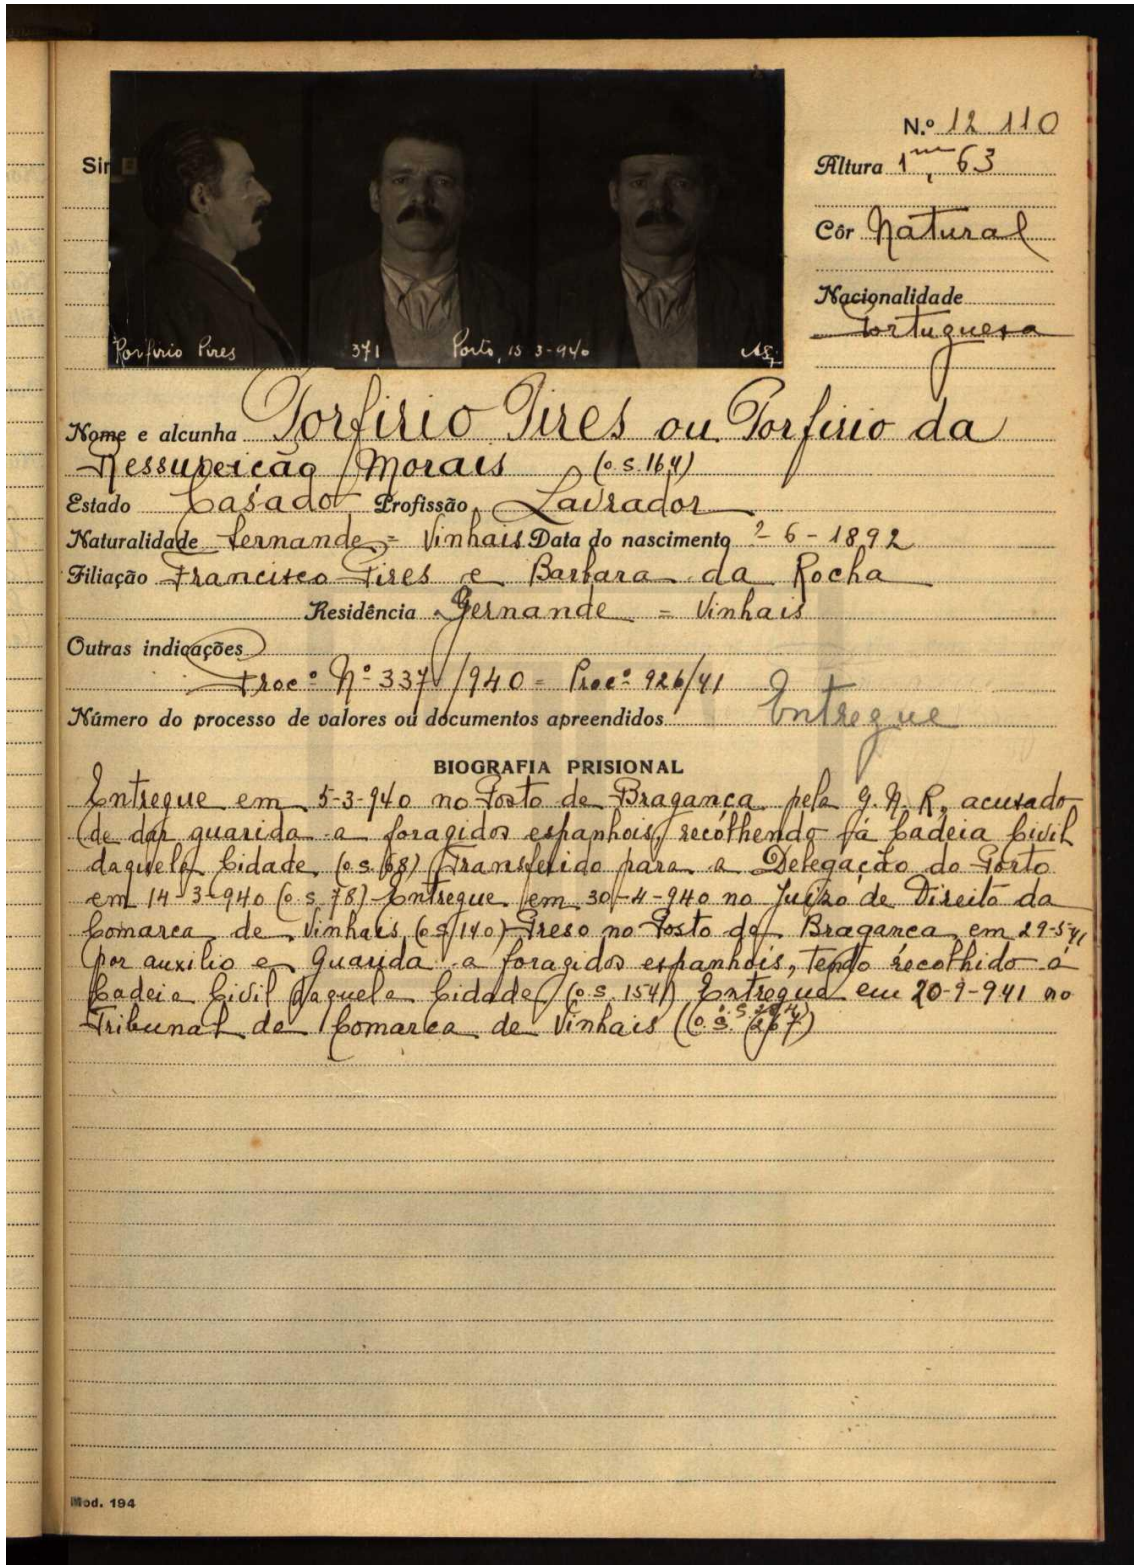 N.º 12 110
Sin
Altura 1m,63
Côr Natural
Nacionalidade
Portuguesa
Porfirio Pires 371 Porto, 15 3-940
Nome e alcunha Porfirio Pires ou Porfirio da
Ressureicão Morais (o.s.164)
Estado Casado Profissão Lavrador
Naturalidade Fernande = Vinhais Data do nascimento ?-6-1892
Filiação Francisco Pires e Barbara da Rocha
Residência Gernande = Vinhais
Outras indicações
Procº Nº 337/940 = Procº 926/41
Número do processo de valores ou documentos apreendidos Entregue
BIOGRAFIA PRISIONAL
Entregue em 5-3-940 no Posto de Bragança pela G.N.R, acusado
de dar guarida a foragidos espanhois, recolhendo á Cadeia Civil
daquela Cidade (o.s.68) Transferido para a Delegação do Porto
em 14-3-940 (o.s.78) Entregue em 30-4-940 no Juizo de Direito da
Comarca de Vinhais (o.s.140) Preso no Posto de Bragança em 29-5-41
por auxilio e Guarida a foragidos espanhois, tendo recolhido á
Cadeia Civil daquela Cidade (o.s.154) Entregue em 20-9-941 no
Tribunal da Comarca de Vinhais (o.s. 267)
Mod. 194